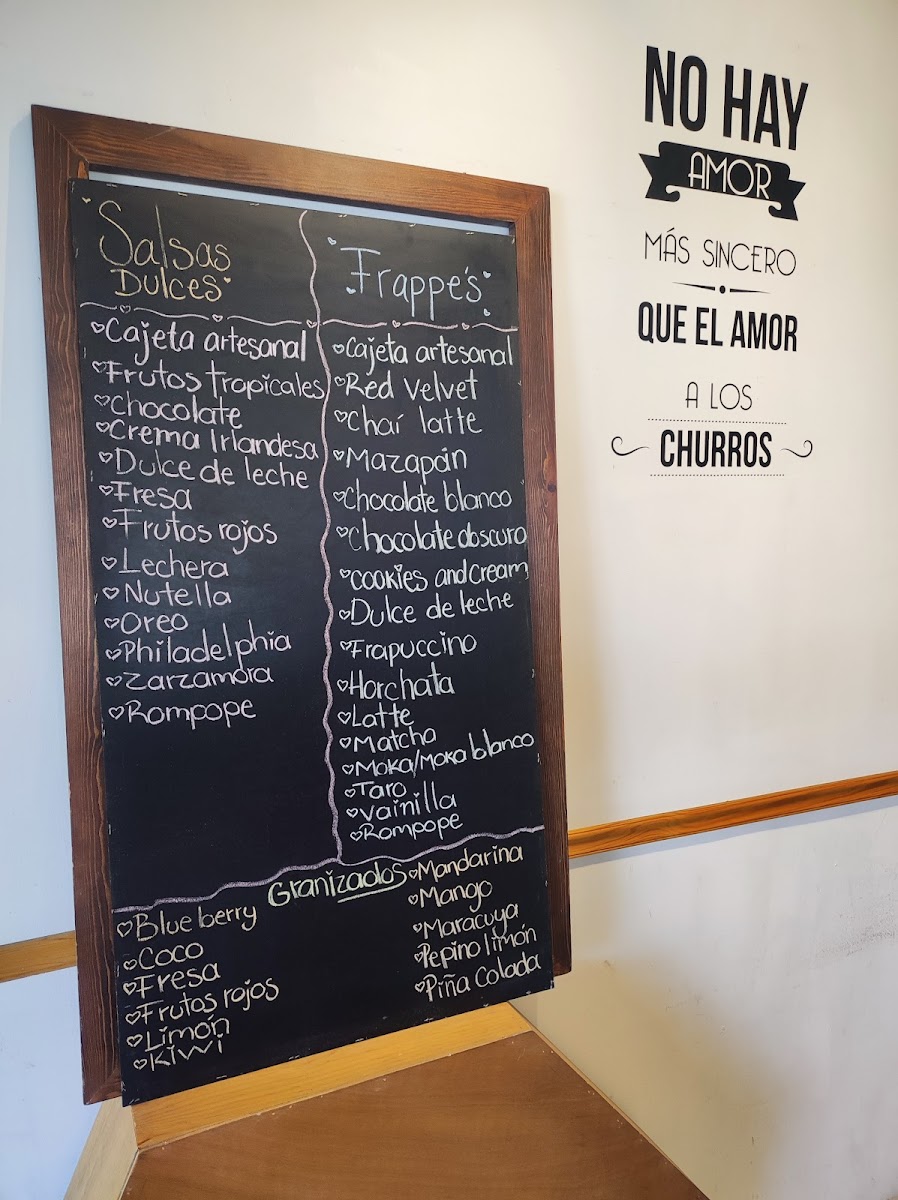 Salsas
Dulces
Cajeta artesanal
Frutos tropicales
Chocolate
Crema Irlandesa
Dulce de leche
Fresa
Frutos rojos
Lechera
Nutella
Oreo
Philadelphia
Zarzamora
Rompope
Frappe's
Cajeta artesanal
Red Velvet
Chaí latte
Mazapán
Chocolate blanco
Chocolate obscuro
cookies and cream
Dulce de leche
Frapuccino
Horchata
Latte
Matcha
Moka/Moka blanco
Taro
vainilla
Rompope
Granizados
Blue berry
Coco
Fresa
Frutos rojos
Limón
Kiwi
Mandarina
Mango
Maracuya
Pepino limón
Piña Colada
NO HAY
AMOR
MÁS SINCERO
QUE EL AMOR
A LOS
CHURROS